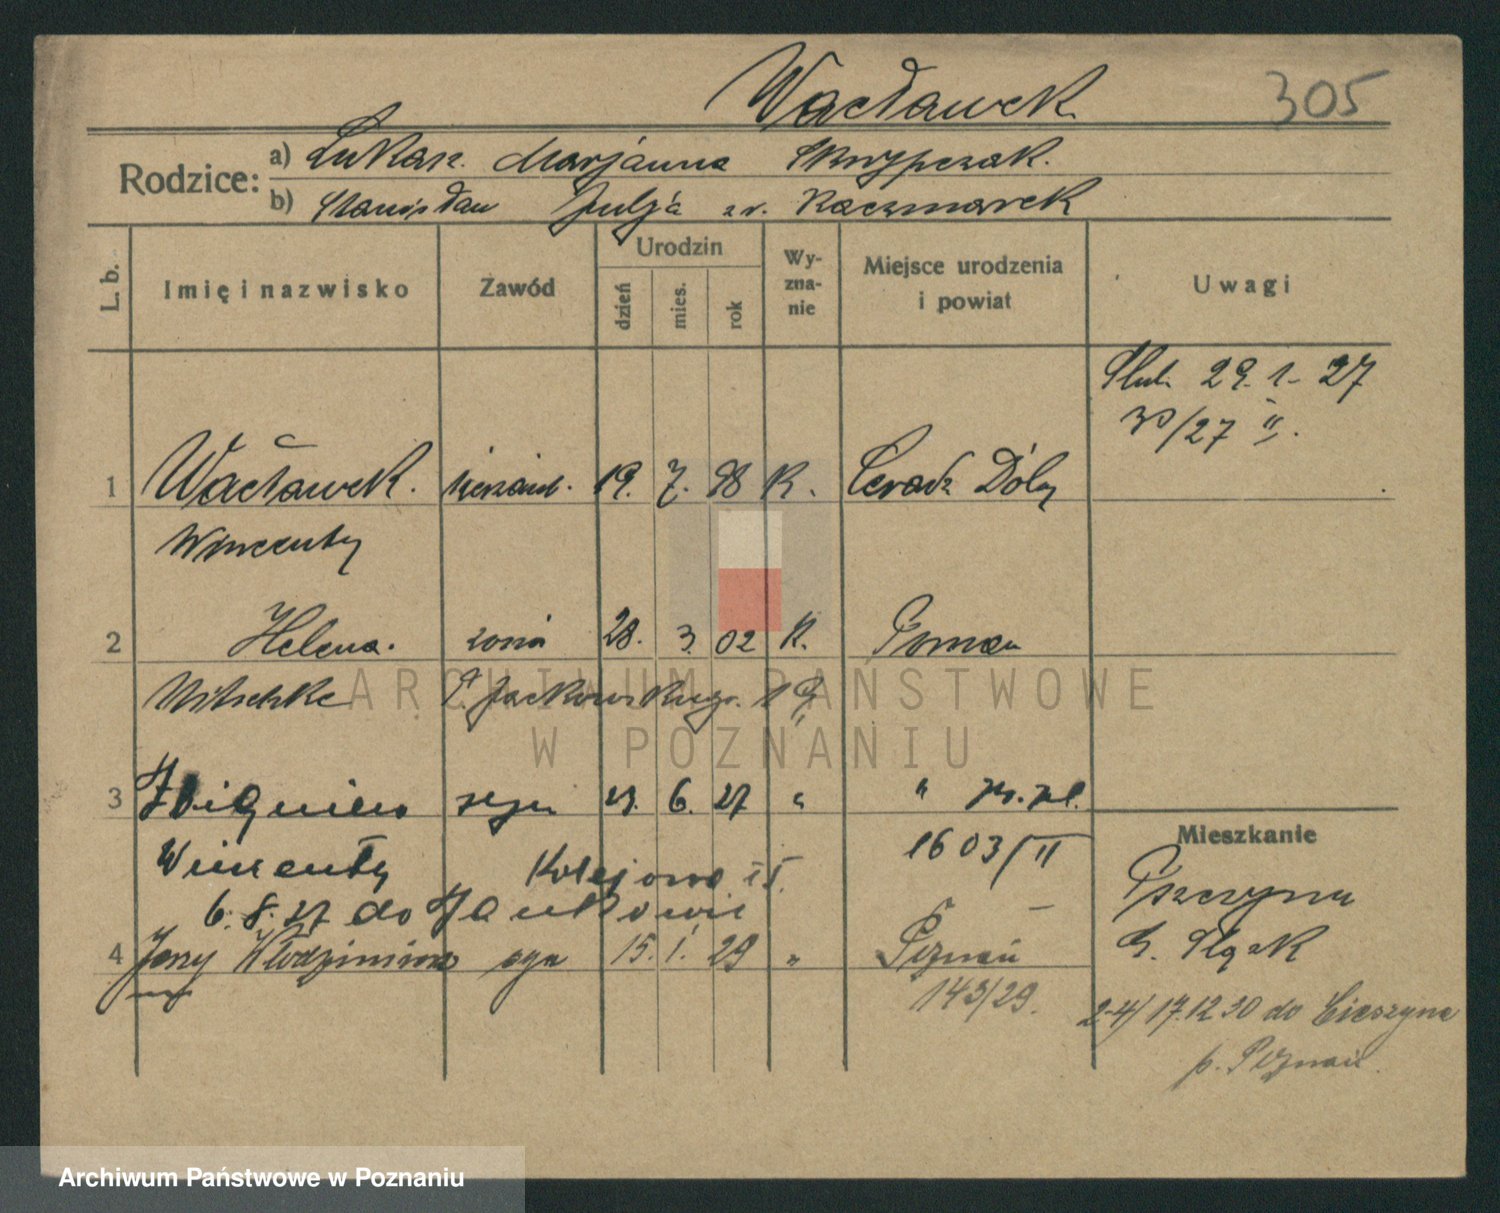 Wacławek 305
Rodzice: a) Łukasz. Marjanna Skrzypczak.
b) Stanisław Julja z d. Kaczmarek
L. b. Imię i nazwisko Zawód Urodzin dzień mies. rok Wyznanie Miejsce urodzenia i powiat Uwagi
Ślub. 29. 1. 27
30/27 II.
1 Wacławek. sierżant. 19. 7. 98 K. Ceradz Dólny
Wincenty
2 Helena. żona 28. 3. 02 K. Poznań
Nitschke P. Jackowskiego. 19
3 Zbigniew syn 23. 6. 27 " "
Mieszkanie
Wincenty Kolejowa 1603/II
Pszczyna
6. 8. 27 do Jankowic
G. Śląsk
4 Jerzy Włodzimierz syn 15. 1. 29 " Poznań
143/29.
2-4/ 17.12 30 do Cieszyna
p. Poznań.
ARCHIWUM PAŃSTWOWE
W POZNANIU
Archiwum Państwowe w Poznaniu